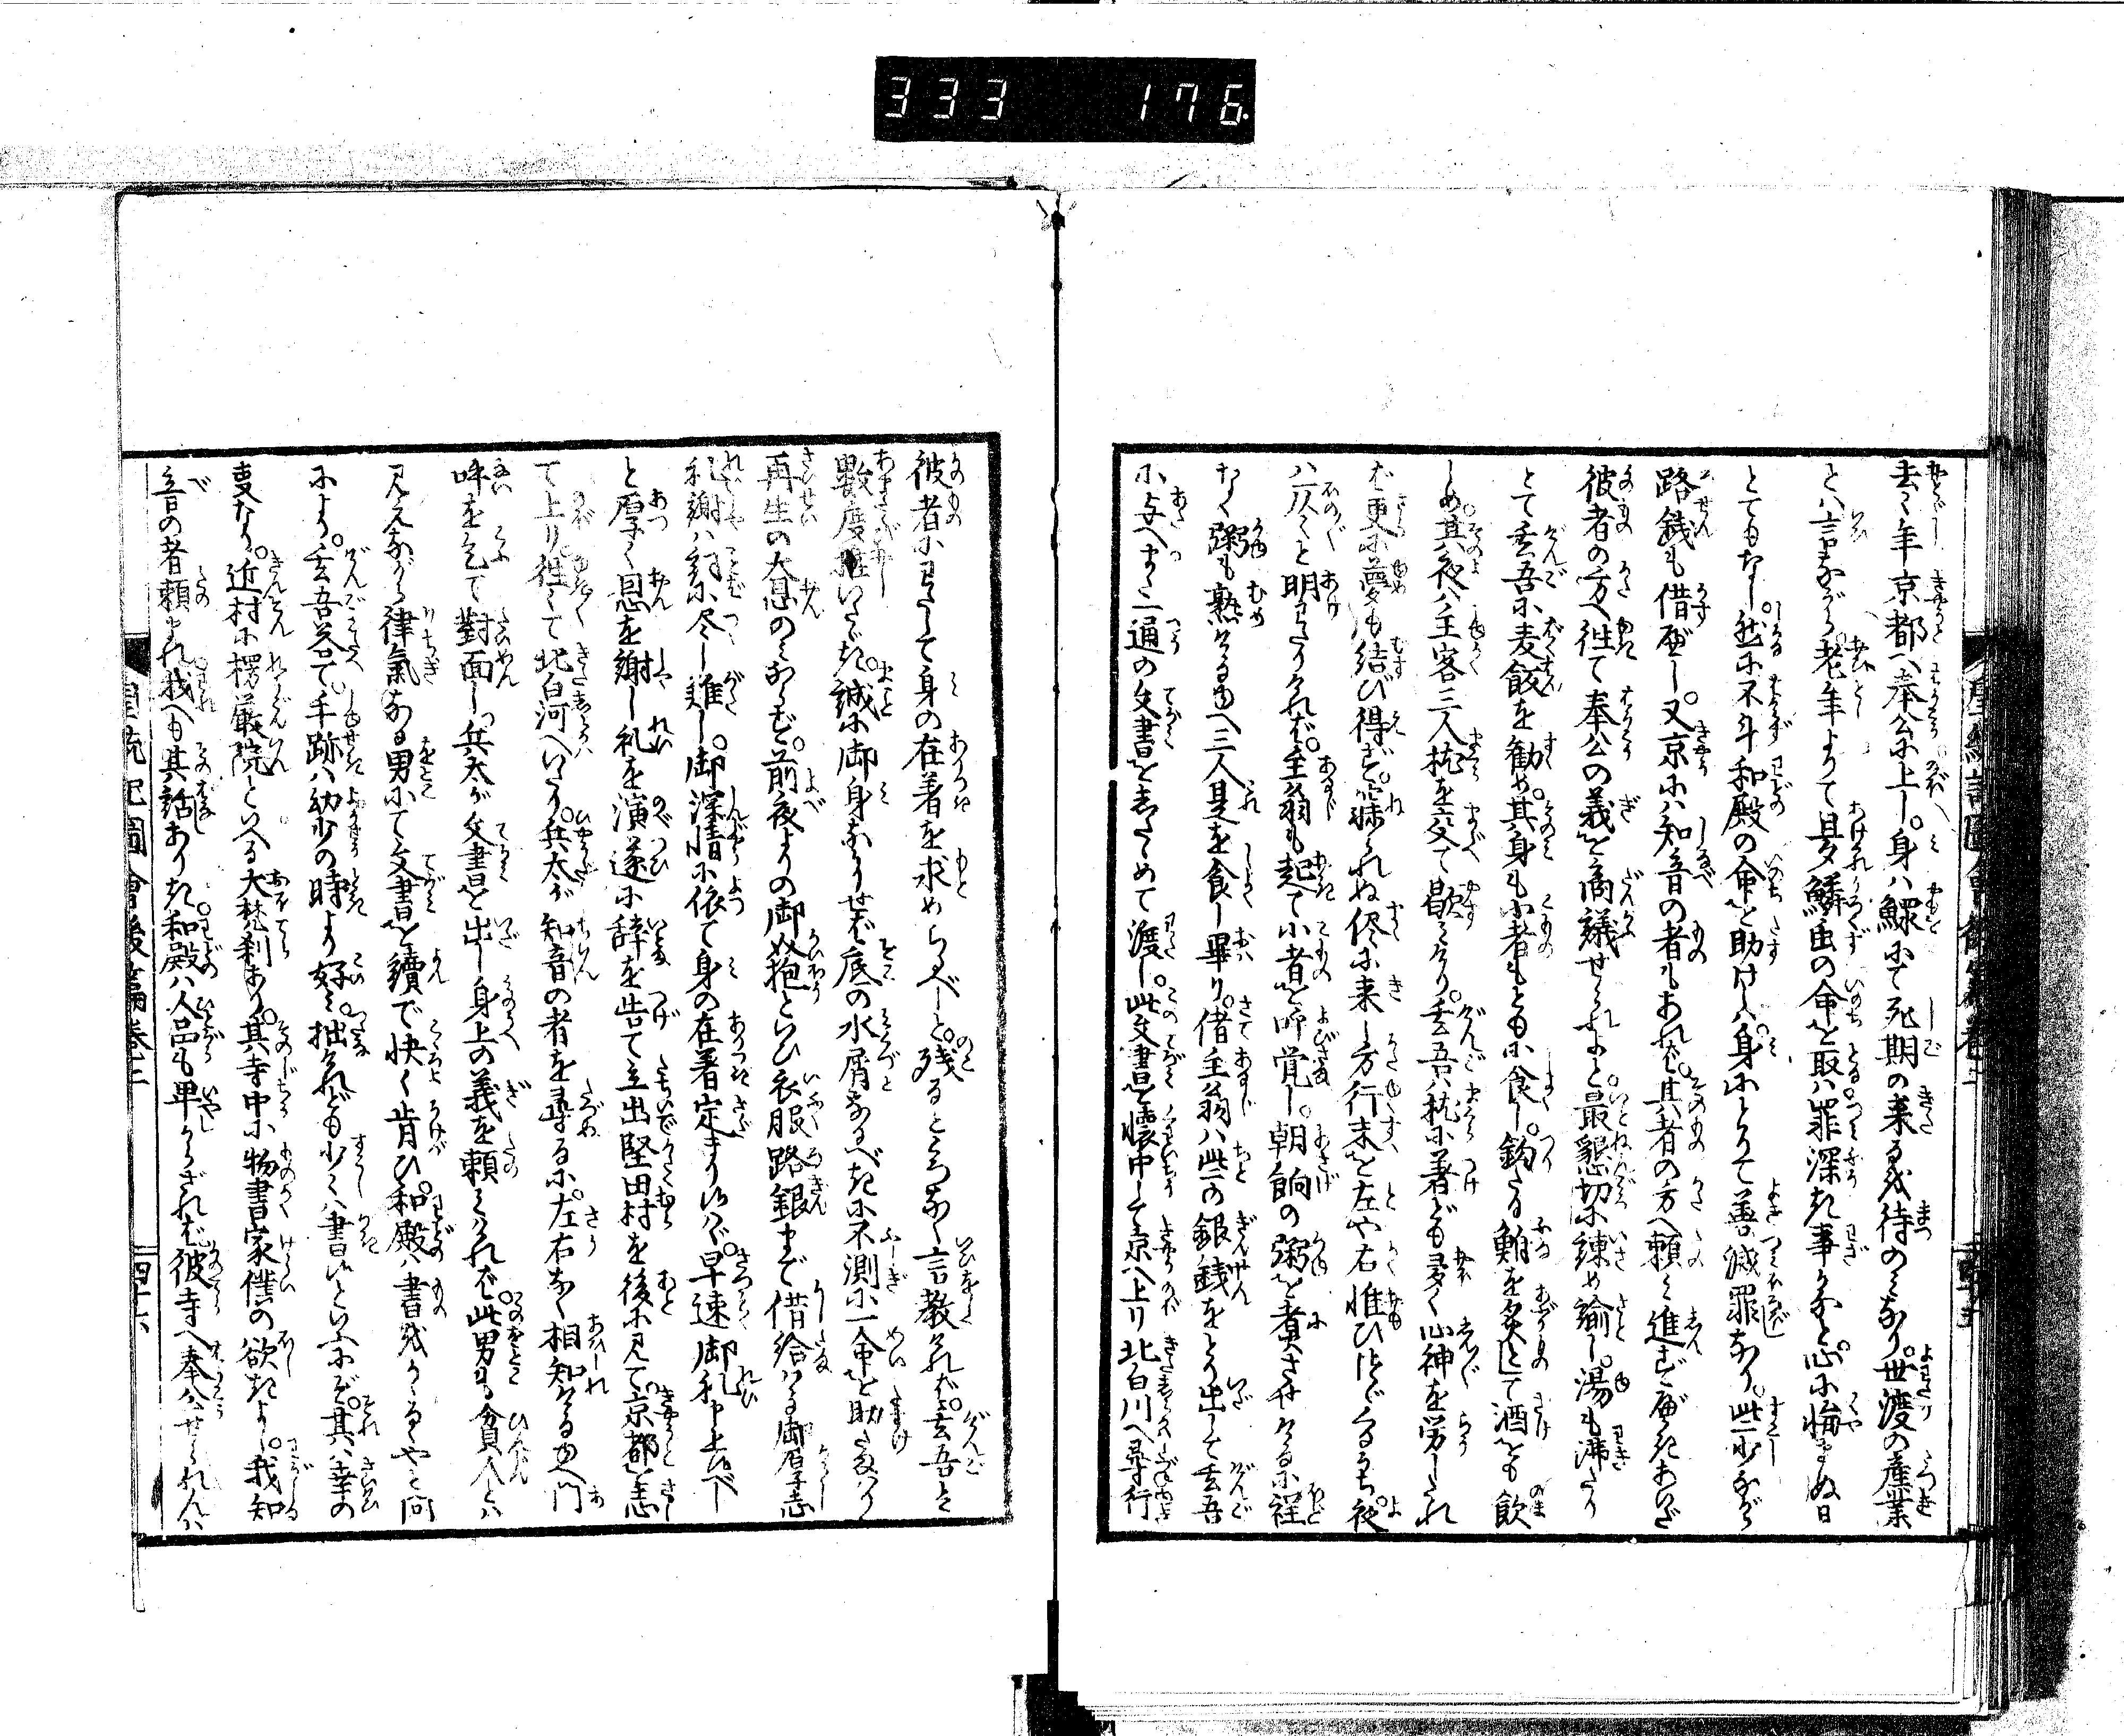 333 176
去年京都へ奉公に上し。身ハ鰥にて死期の来るを待のミなり。世渡の産業
とハ言ながら。老年よりて是夕鱗虫の命を取ハ罪深き事かなと。心に悔まぬ日
とてもなし。然に不斗和殿の命を助けしハ。身にとりて善滅罪なり。些少ながら
路銭も借べし。又京にハ知音の者もあれバ。其者の方へ頼ミ進ずべきあいだ
彼者の方へ往て奉公の義を商議せられよと。最懇切に練め諭し。湯も沸たり
とて玄吾に麦餃を勧め。其身も小者もともに食し。釣たる鮒を炙として酒をも飲
しめ。其夜ハ主客三人枕を交て歇ミけり。玄吾ハ枕に着ども。多く心神を労したれ
ば。更に夢も結び得ず。寐られぬ侭に来し方行末を左や右惟ひつゞくるうち。夜
ハ仄々と明わたりけれバ。主翁も起て小者を呼覚し。朝餉の粥を煮させけるに。程
なく粥も熟けるゆへ三人是を食し畢り。偖主翁ハ些の銀銭をとり出して玄吾
に与へ。また一通の文書をしたゝめて渡し。此文書を懐中して京へ上り北白川へ尋行
彼者にわたして身の在着を求めらるべしと。残るところなく言教けれバ。玄吾ハ
数度推いたゞき。誠に御身なかりせバ底の水屑なるべきに。不測に一命を助たまハり
再生の大恩のミならず。前夜よりの御介抱といひ衣服路銀まで借給ハる御厚志
礼謝ハ詞に尽し難し。御深情に依て身の在着定まり候ハヾ。早速御礼申上候べし
と厚く恩を謝し礼を演。遂に辞を告て立出堅田村を後に見て。京都に志し
て上り。往々て北白河へいたり。兵太が知音の者を尋るに。左右なく相知けるゆへ。門
呼を乞て對面し。兵太が文書を出し身上の義を頼ミけれバ。此男も貧人とハ
見えながら律氣なる男にて。文書を續で快く肯ひ。和殿ハ書をかゝるゝやと問
により。玄吾答て手跡ハ幼少の時より好ミ。拙けれども少々ハ書候といふにぞ。其ハ幸の
事なり。近村に楞厳院といへる大梵刹あり。其寺中に物書家僕の欲きよし。我知
音の者頼まれ。我へも其話ありき。和殿ハ人品も卑からざれバ。彼寺へ奉公せられんハ
皇統記圖會後篇巻之二
四十六